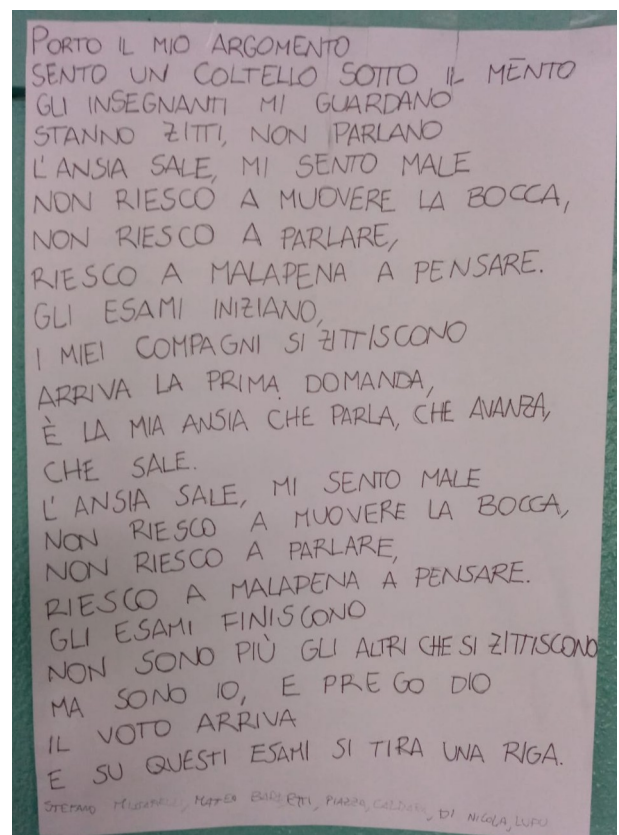 PORTO IL MIO ARGOMENTO
SENTO UN COLTELLO SOTTO IL MENTO
GLI INSEGNANTI MI GUARDANO
STANNO ZITTI, NON PARLANO
L'ANSIA SALE, MI SENTO MALE
NON RIESCO A MUOVERE LA BOCCA,
NON RIESCO A PARLARE,
RIESCO A MALAPENA A PENSARE.
GLI ESAMI INIZIANO,
I MIEI COMPAGNI SI ZITTISCONO
ARRIVA LA PRIMA DOMANDA,
È LA MIA ANSIA CHE PARLA, CHE AVANZA,
CHE SALE.
L'ANSIA SALE, MI SENTO MALE
NON RIESCO A MUOVERE LA BOCCA,
NON RIESCO A PARLARE,
RIESCO A MALAPENA A PENSARE.
GLI ESAMI FINISCONO
NON SONO PIÙ GLI ALTRI CHE SI ZITTISCONO
MA SONO IO, E PREGO DIO
IL VOTO ARRIVA
E SU QUESTI ESAMI SI TIRA UNA RIGA.
STEFANO MATTEO PIAZZA, DI NICOLA, LUPU